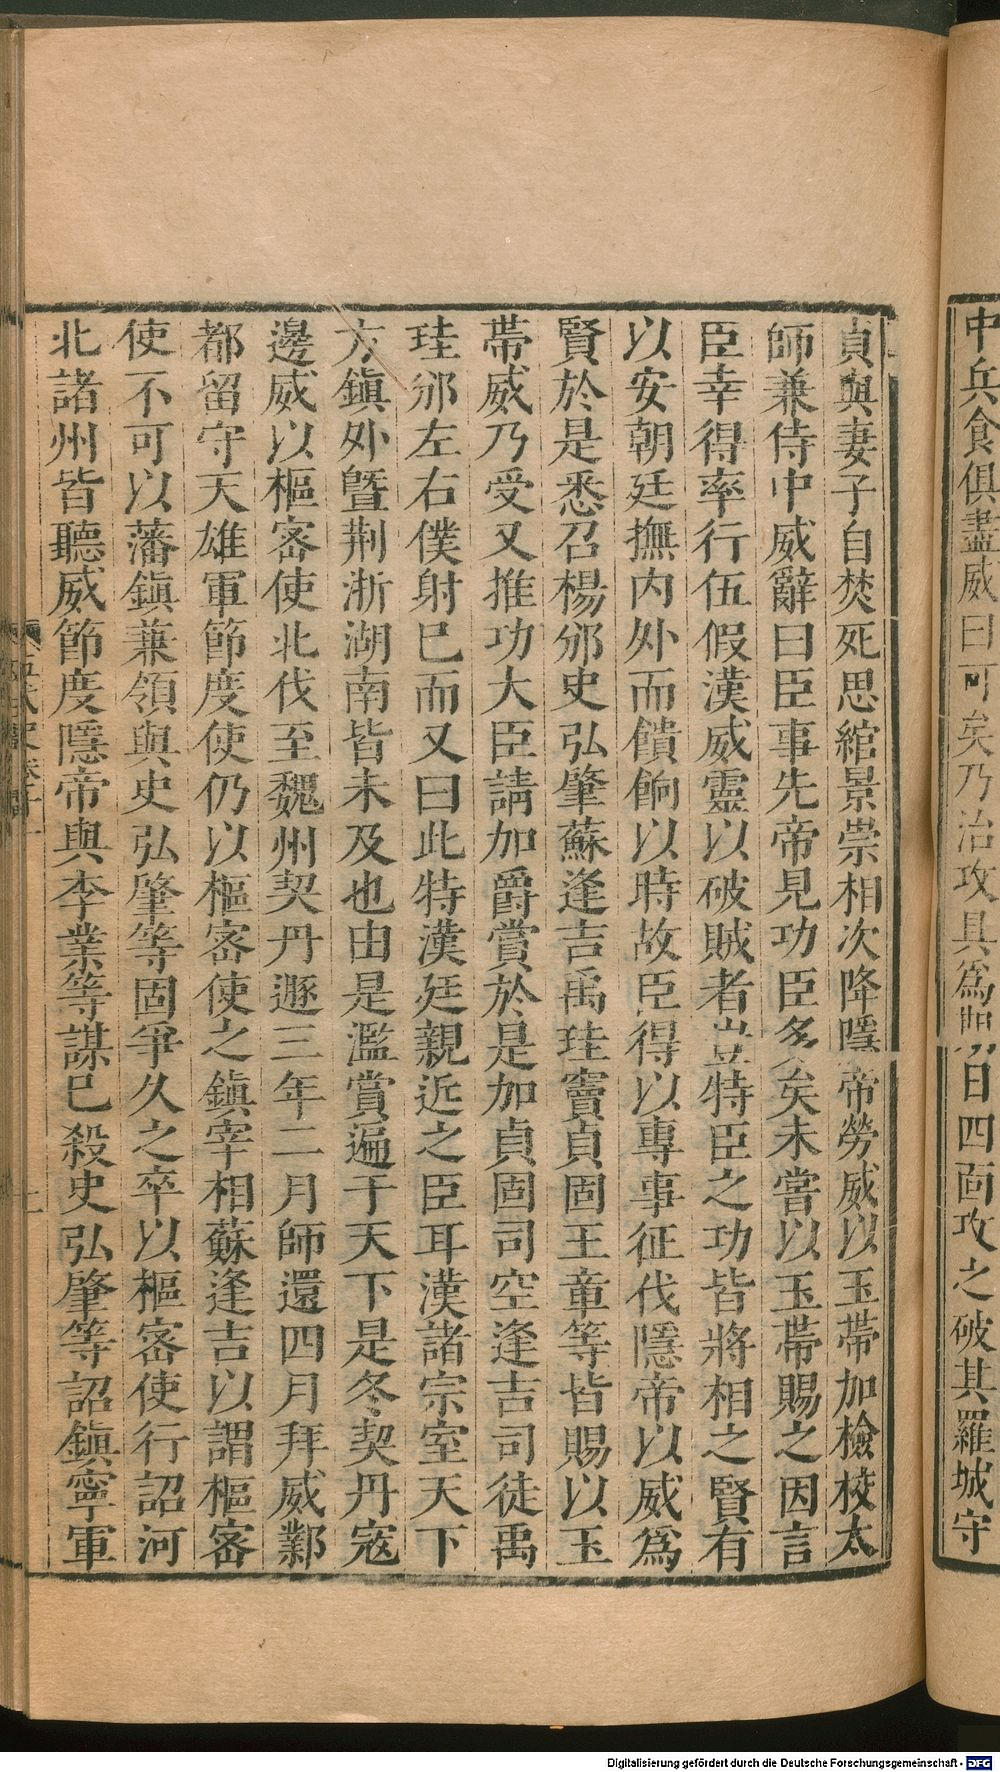 中兵食俱盡威曰可矣乃治攻具爲期日四面攻之破其羅城守
貞與妻子自焚死思綰景崇相次降隱帝勞威以玉帶加檢校太
師兼侍中威辭曰臣事先帝見功臣多矣未嘗以玉帶賜之因言
臣幸得率行伍假漢威靈以破賊者豈特臣之功皆將相之賢有
以安朝廷撫内外而饋餉以時故臣得以專事征伐隱帝以威爲
賢於是悉召楊邠史弘肇蘇逢吉禹珪竇貞固王章等皆賜以玉
帶威乃受又推功大臣請加爵賞於是加貞固司空逢吉司徒禹
珪邠左右僕射已而又曰此特漢廷親近之臣耳漢諸宗室天下
方鎭外曁荆浙湖南皆未及也由是濫賞遍于天下是冬契丹寇
邊威以樞密使北伐至魏州契丹遯三年二月師還四月拜威鄴
都留守天雄軍節度使仍以樞密使之鎭宰相蘇逢吉以謂樞密
使不可以藩鎭兼領與史弘肇等固爭久之卒以樞密使行詔河
北諸州皆聽威節度隱帝與李業等謀已殺史弘肇等詔鎭寧軍
Digitalisierung gefördert durch die Deutsche Forschungsgemeinschaft - DFG